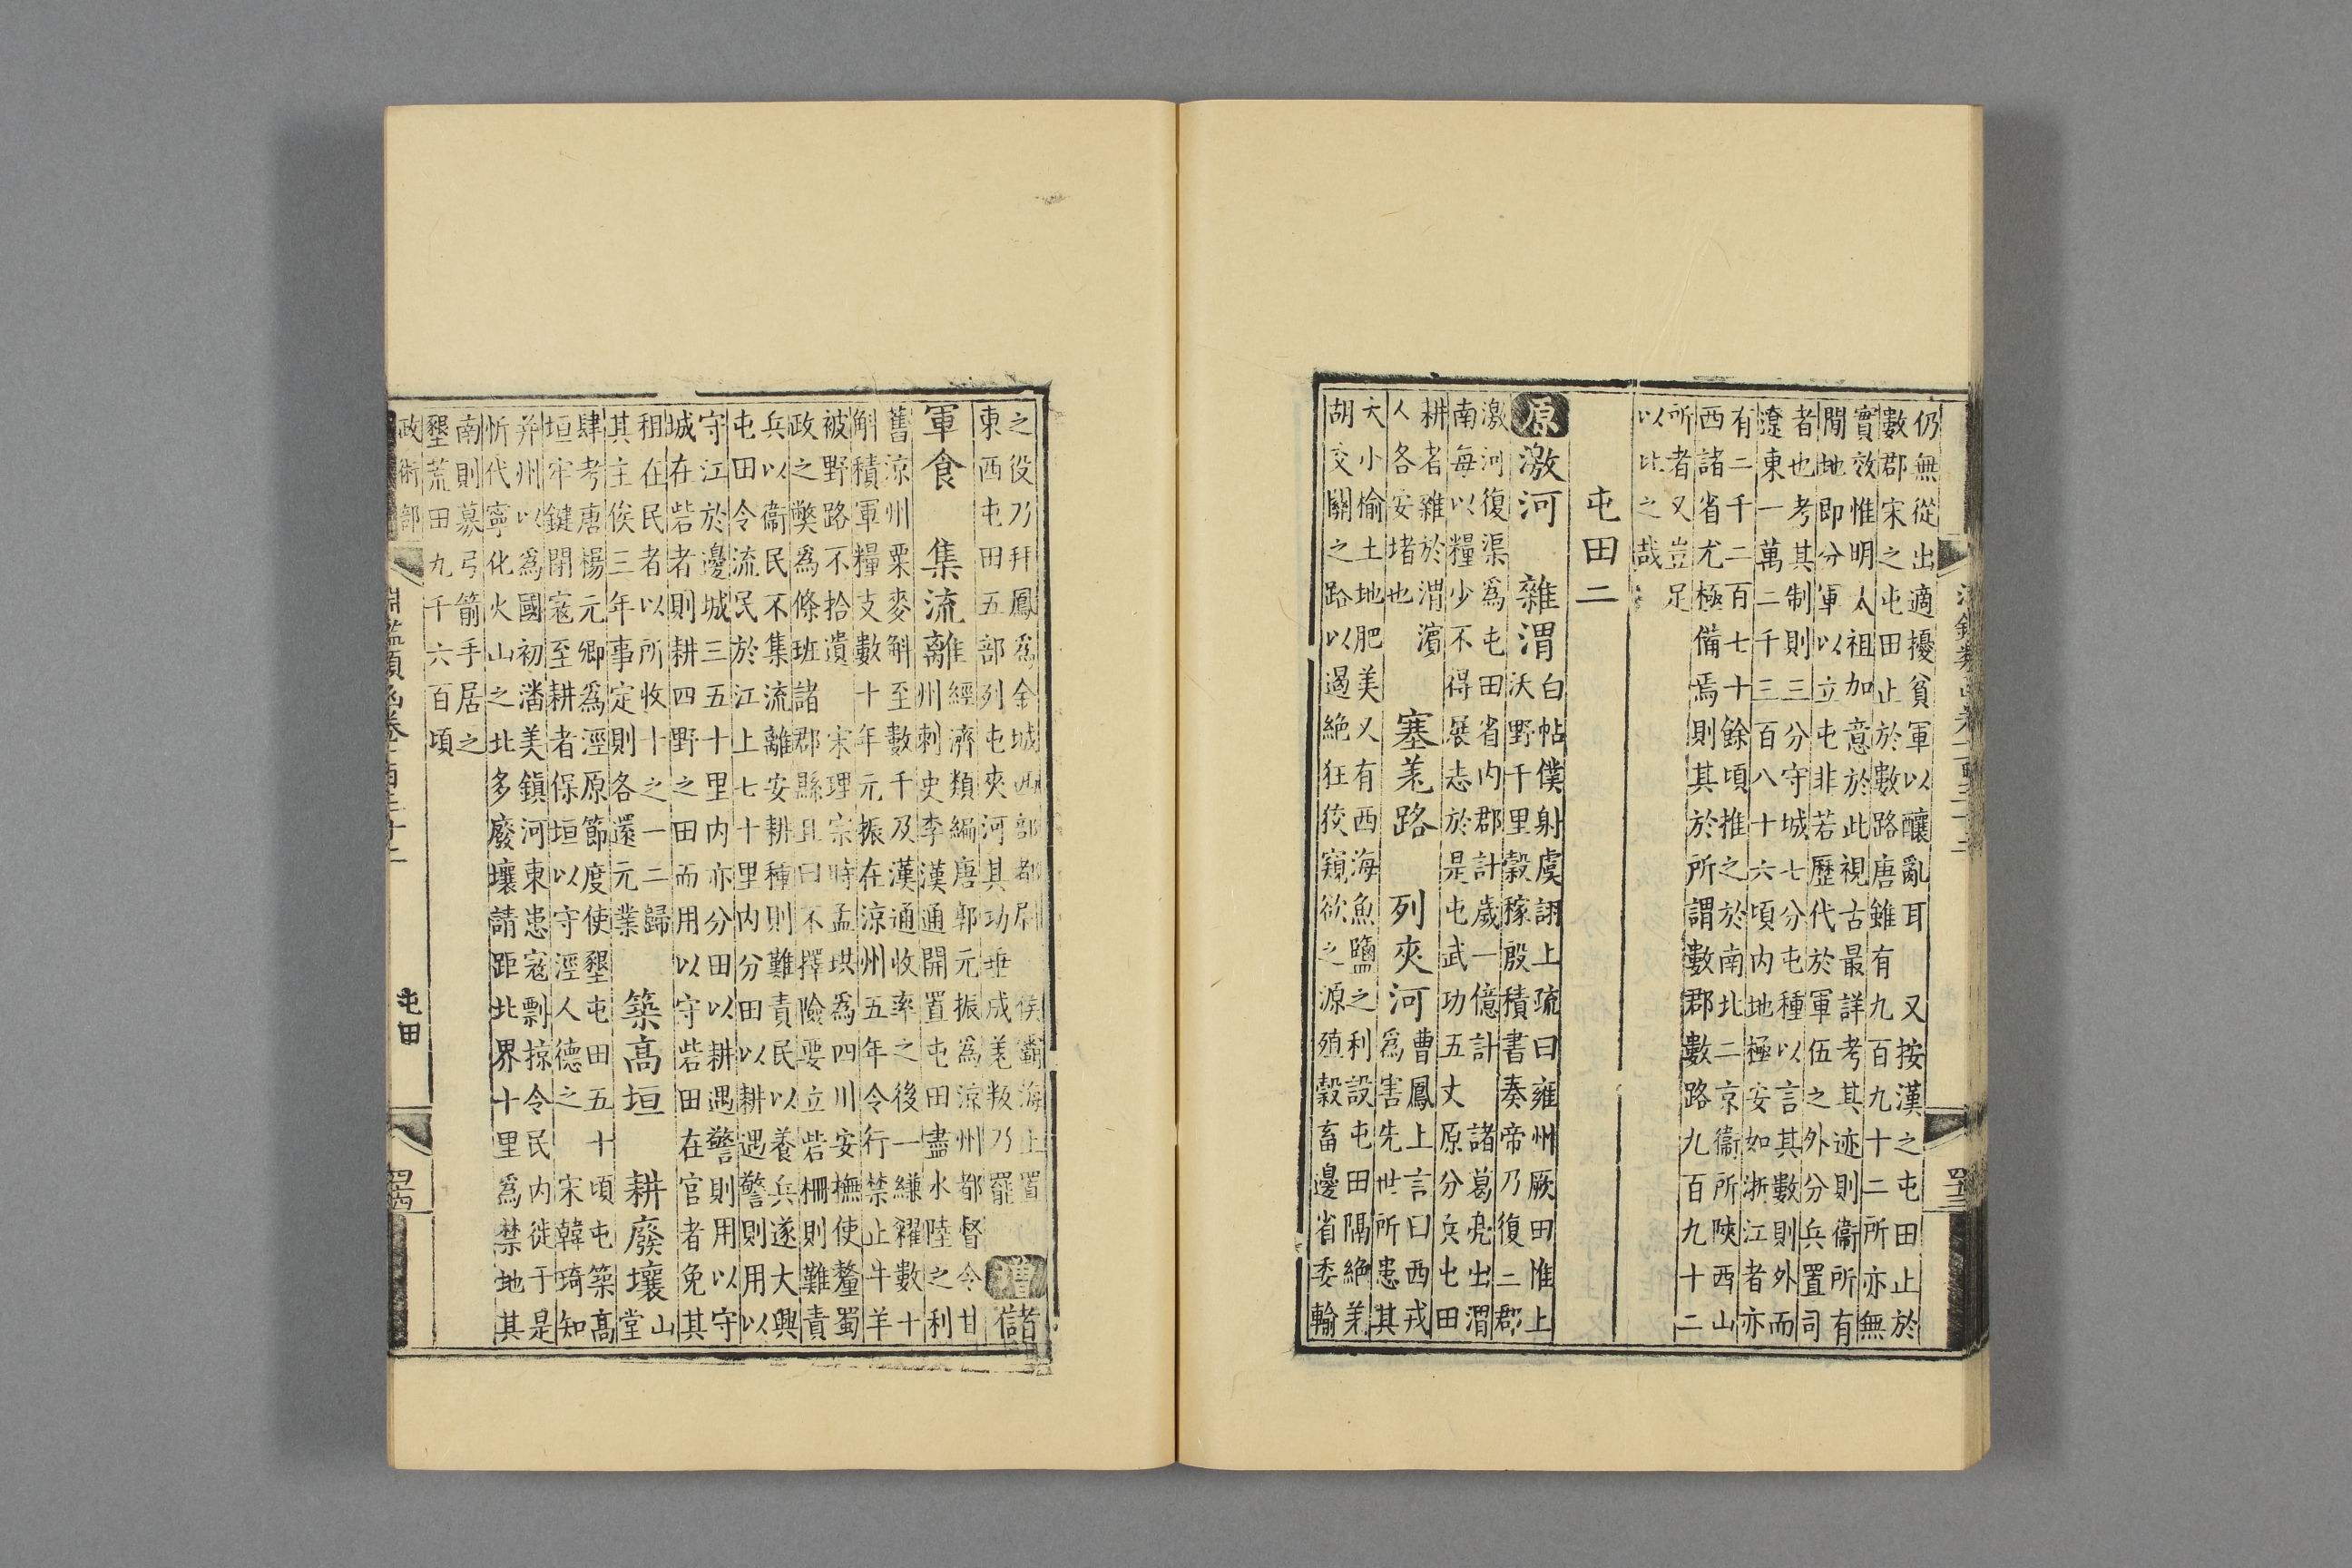 仍無從出適擾貧軍以釀亂耳　又按漢之屯田止於
數郡宋之屯田止於數路唐雖有九百九十二所亦無
實效惟明太祖加意於此視古最詳考其迹則衞所有
閒地即分軍以立屯非若歷代於軍伍之外分兵置司
者也考其制則三分守城七分屯種以言其數則外而
遼東一萬二千三百八十六頃內地極安如浙江者亦
有二千二百七十餘頃推之於南北二京衞所陝西山
西諸省尤極備焉則其於所謂數郡數路九百九十二
所者又豈足
以比之哉
屯田二
原激河　雜渭
白帖僕射虞詡上疏曰雍州厥田惟上
沃野千里穀稼殷積書奏帝乃復二郡
激河復渠為屯田省內郡計歲一億計　諸葛亮出渭
南每以糧少不得展志於是屯武功五丈原分兵屯田
耕者雜於渭濱
人各安堵也
塞羌路　列夾河
曹鳳上言曰西戎
為害先世所患其
大小榆土地肥美又有西海魚鹽之利設屯田隔絕羌
胡交關之路以遏絕狂狡窺欲之源殖穀畜邊省委輸
之役乃拜鳳為金城西部都尉　侯霸海上置
東西屯田五部列屯夾河其功垂成羌叛乃罷
增儲
軍食　集流離
經濟類編唐郭元振為涼州都督令甘
州刺史李漢通開置屯田盡水陸之利
舊涼州粟麥斛至數千及漢通收率之後一縑糴數十
斛積軍糧支數十年元振在涼州五年令行禁止牛羊
被野路不拾遺　宋理宗時孟珙為四川安撫使釐蜀
政之獘為條班諸郡縣且曰不擇險要立砦柵則難責
兵以衞民不集流離安耕種則難責民以養兵遂大興
屯田令流民於江上七十里內分田以耕遇警則用以
守江於邊城三五十里內亦分田以耕遇警則用以守
城在砦者則耕四野之田而用以守砦田在官者免其
租在民者以所收十之一二歸
其主俟三年事定則各還元業
築高垣　耕廢壤
山
堂
肆考唐楊元卿為涇原節度使墾屯田五十頃屯築高
垣牢鍵閉寇至耕者保垣以守涇人德之　宋韓琦知
并州以為國初潘美鎮河東患寇剽掠令民內徙于是
忻代寧化火山之北多廢壤請距北界十里為禁地其
南則募弓箭手居之
墾荒田九千六百頃
政術部
淵鑑類函卷一百三十二
屯田